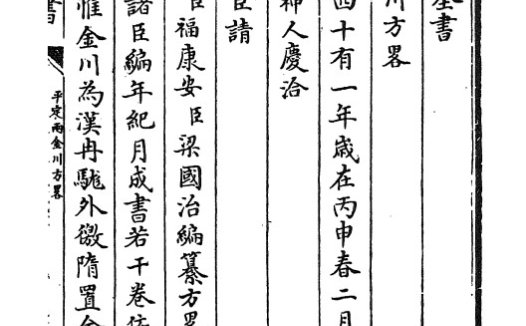 全書
川方畧
四十有一年歲在丙申春二月
神人慶洽
臣請
臣福康安臣梁國治編纂方畧
諸臣編年紀月成書若干卷
惟金川為漢冉駹外徼隋置金
書
平定兩金川方畧